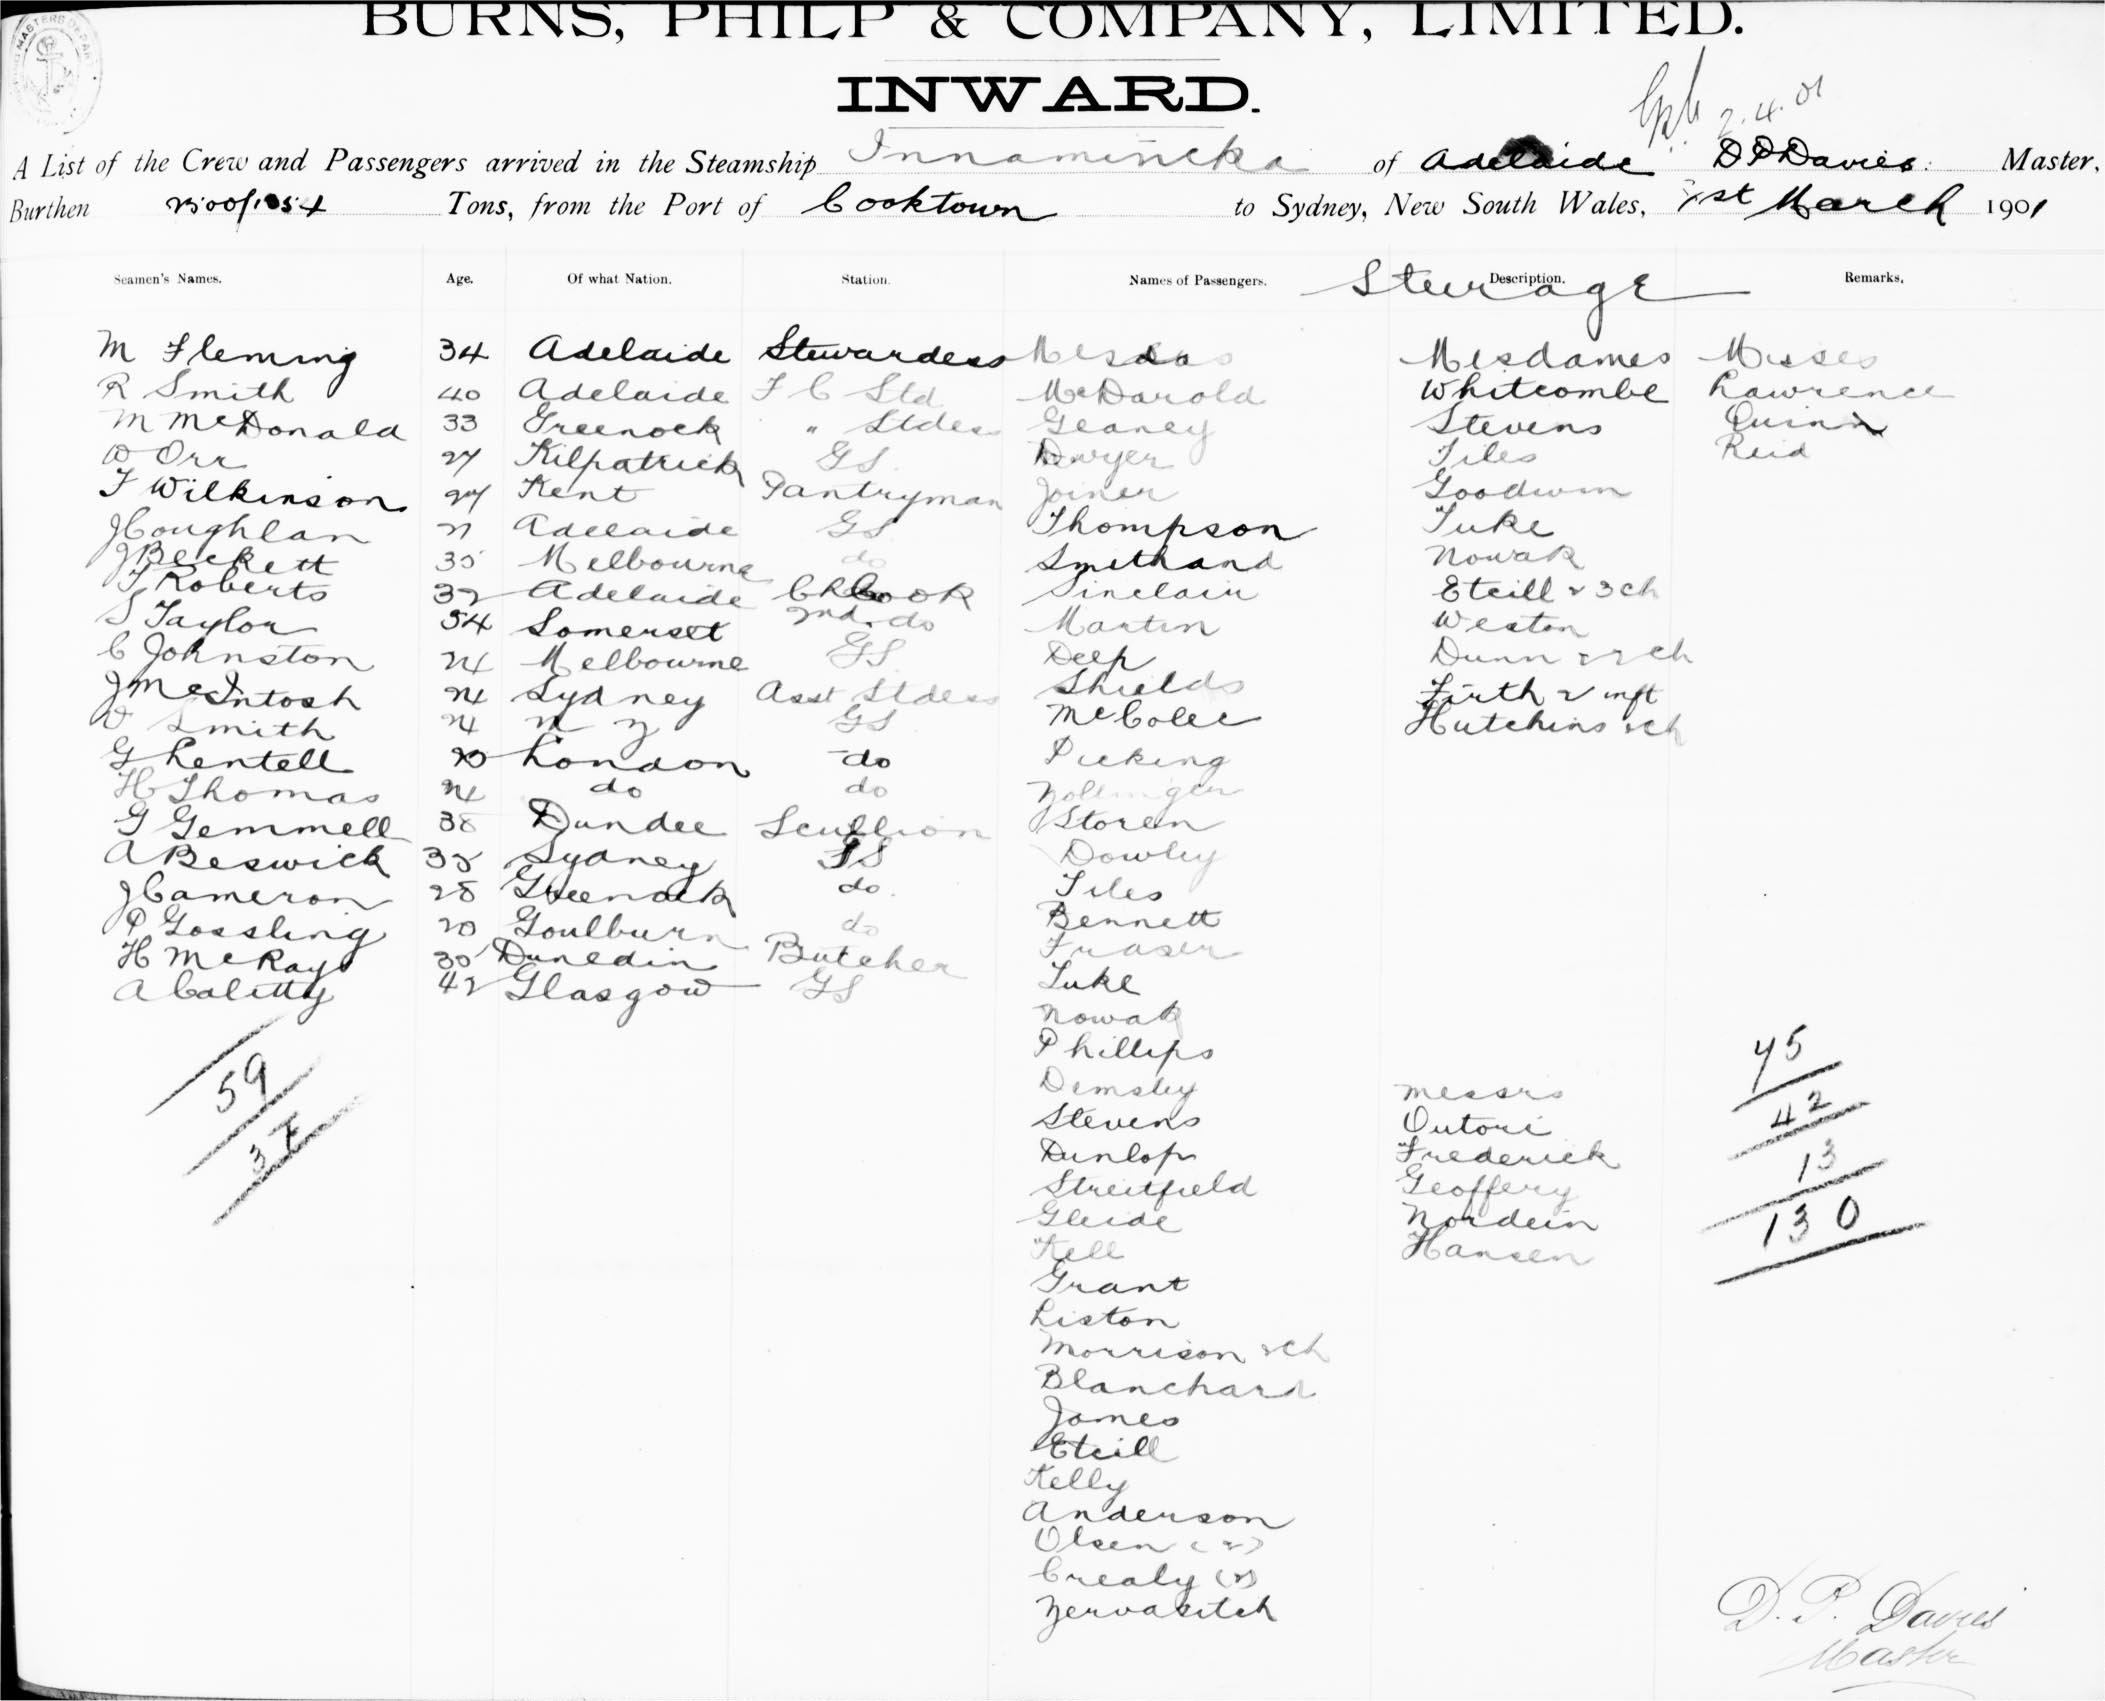 BURNS, PHILP & COMPANY, LIMITED.
INWARD.
2.4.01
A List of the Crew and Passengers arrived in the Steamship Innamincka of Adelaide D P Davies Master,
Burthen 2500/1054 Tons, from the Port of Cooktown to Sydney, New South Wales, 31st March 1901
Seamen's Names. Age. Of what Nation. Station. Names of Passengers. Steerage Description. Remarks.
M Fleming 34 Adelaide Stewardess Mesdames Misses
R Smith 40 Adelaide F C Std McDarold Whitcombe Lawrence
M McDonald 33 Greenock " Stdess Geaney Stevens Quinn
D Orr 27 Kilpatrick GS Dwyer Tiles Reid
F Wilkinson 27 Kent Pantryman Joiner Goodwin
J Coughlan 21 Adelaide GS Thompson Tuke
J Beckett 35 Melbourne do Smithand Nowak
F Roberts 32 Adelaide Ch Cook Sinclair Eteill & 3 ch
S Taylor 54 Somerset 2nd do Martin Weston
C Johnston 24 Melbourne GS Deep Dunn & 2 ch
J McIntosh 24 Sydney Asst Stdess Shields Firth & inft
Smith 24 N Z GS McColee Hutchins & ch
G Lentell 20 London do Picking
H Thomas 24 do do Zollinger
G Gemmell 38 Dundee Scullion Storen
A Beswick 35 Sydney GS Dowley
J Cameron 28 Greenock do Tiles
P Gossling 20 Goulburn do Bennett
H McRay 30 Dunedin Butcher Fraser
A Calitty 42 Glasgow GS Tuke
Nowak
Phillips
Demsley Messrs
Stevens Outori
Dunlop Frederick
Streitfield Geoffery
Gleide Nordein
Kell Hansen
Grant
Liston
Morrison & ch
Blanchard
James
Eteill
Kelly
Anderson
Olsen (2)
Crealy (2)
Zervasitch
59
37
75
42
13
130
D. P. Davies
Master